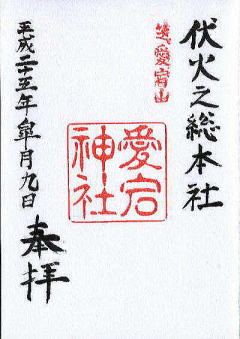 伏火之総本社
愛宕山
愛宕
神社
平成二十五年皐月九日
奉拝